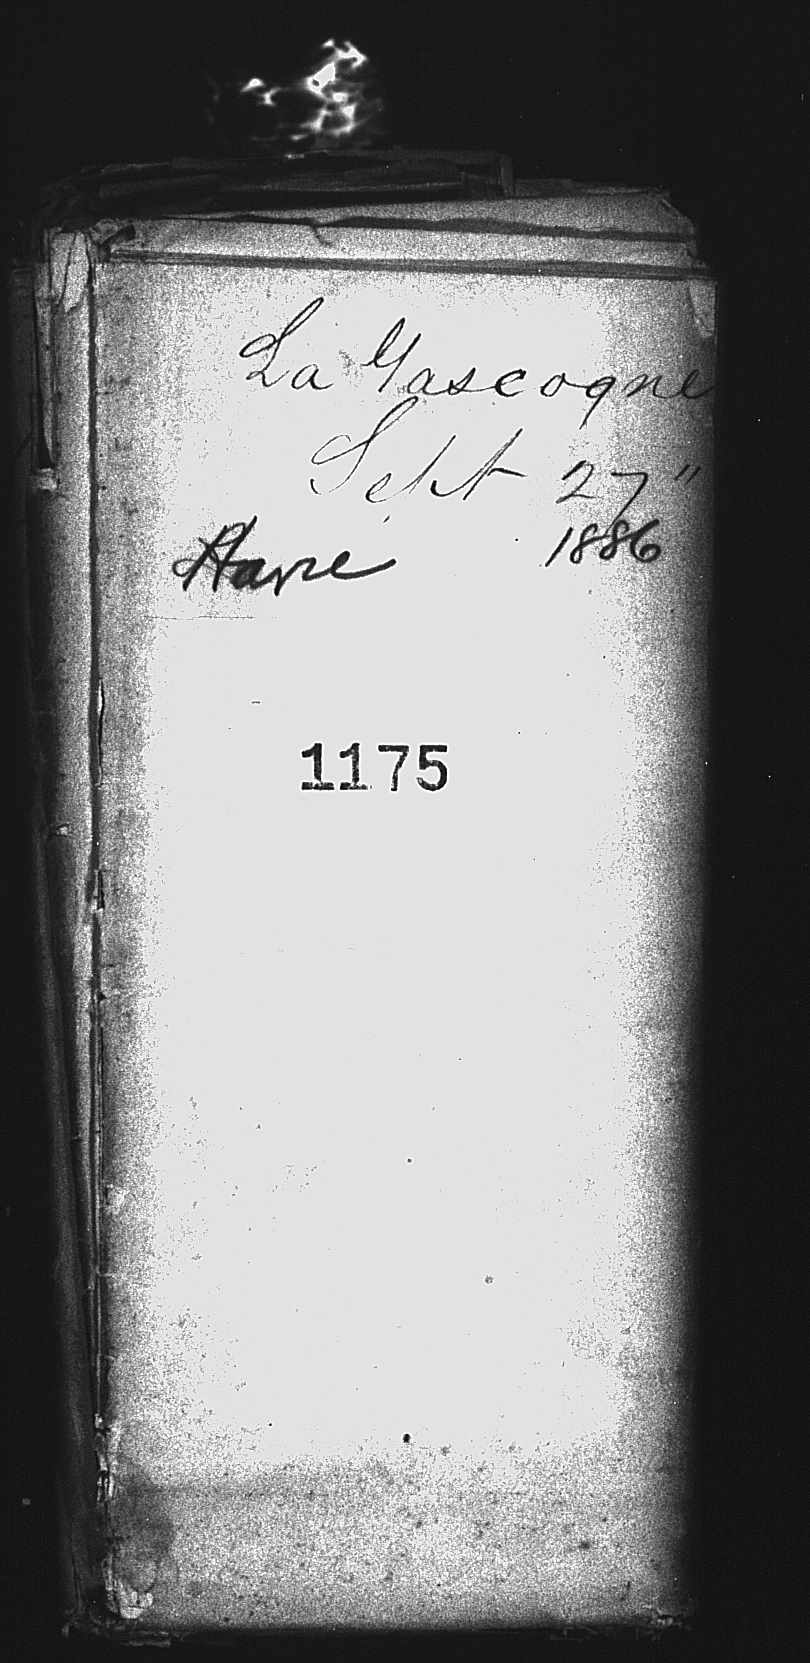 La Gascogne
Sept 27"
Havre 1886
1175